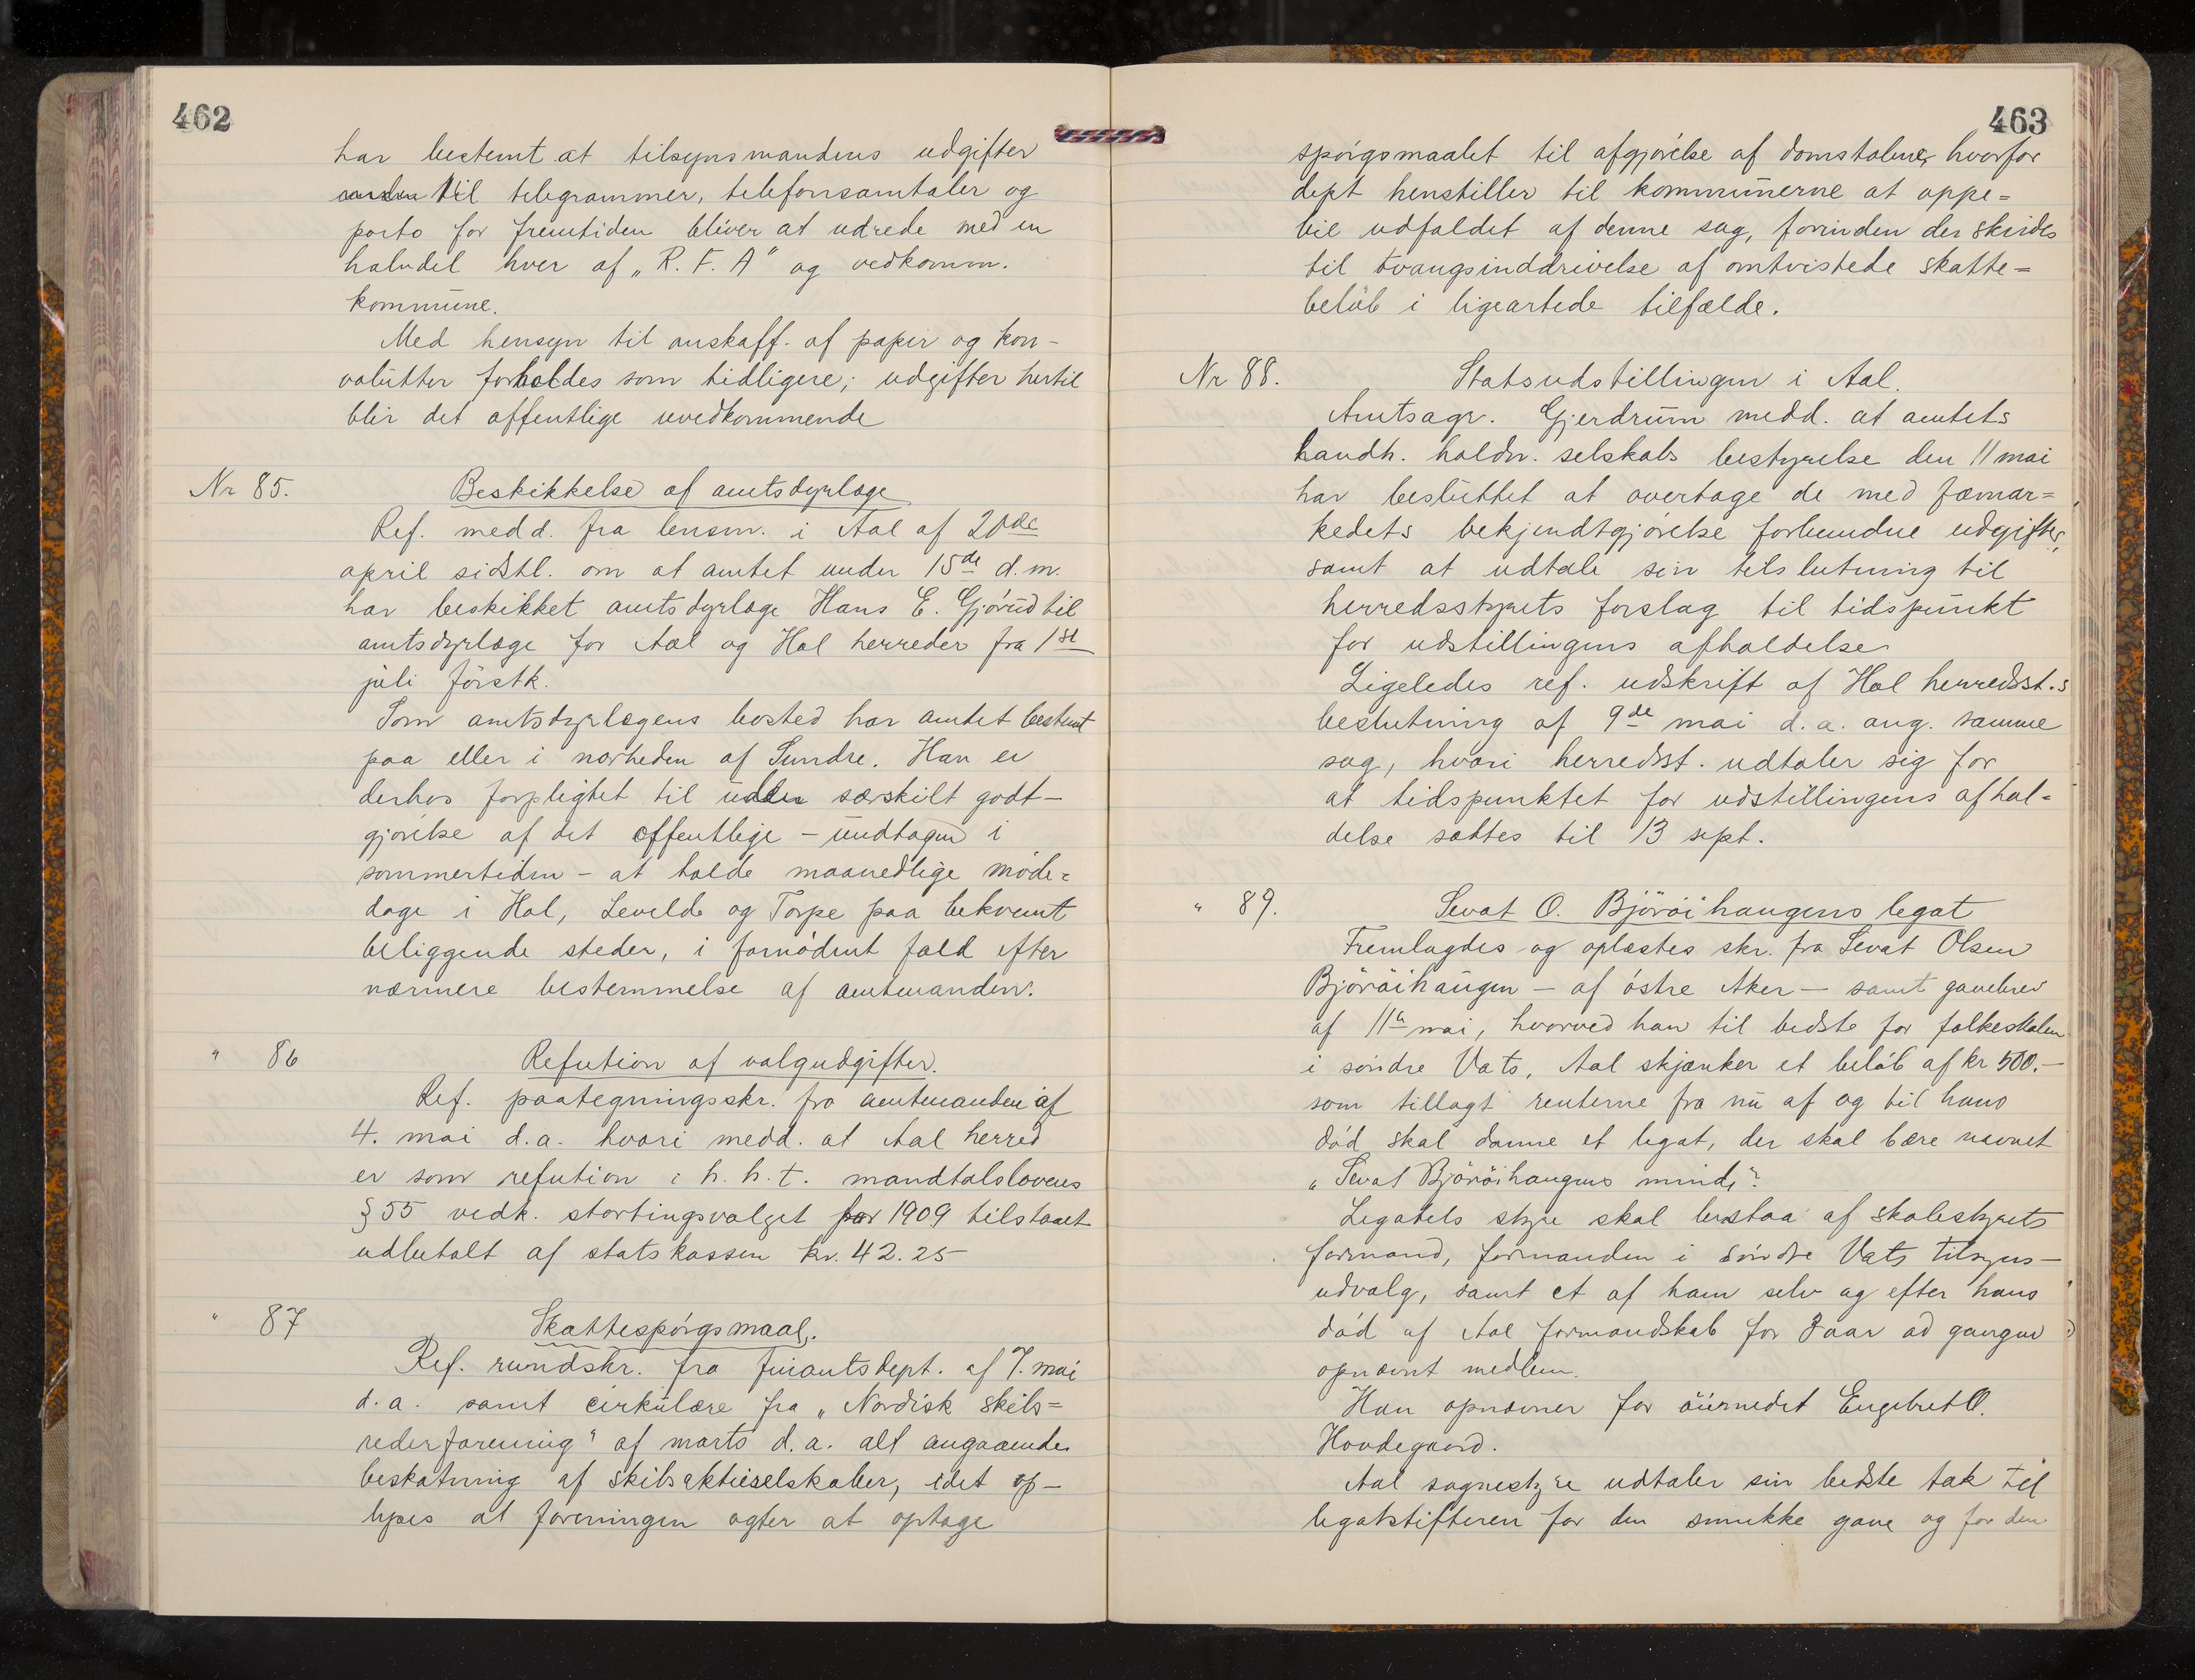 462
har bestemt at tilsynsmandens udgifter
til telegrammer, telefonsamtaler og
porto for fremtiden bliver at udrede med en
halvdel hver af „R. F. A" og vedkomm.
kommune.
Med hensyn til anskaff. af papir og kon-
volutter forholdes som tidligere; udgifter hertil
blir det offentlige uvedkommende
Nr 85. Beskikkelse af amtsdyrlæge
Ref. medd. fra lensm. i Aal af 20de
april sidstl. om at amtet under 15de d. m.
har beskikket amtsdyrlæge Hans E. Gjörud til
amtsdyrlæge for Aal og Hol herreder fra 1st
juli förstk.
Som amtsdyrlægens bosted har amtet bestemt
paa eller i nærheden af Sundre. Han er
derhos forpligtet til uden særskilt godt-
gjörelse af det offentlige - undtagen i
sommertiden - at holde maanedlige möde=
dage i Hol, Leveld og Torpe paa bekvemt
beliggende steder, i fornödent fald efter
nærmere bestemmelse af amtmanden.
" 86 Refution af valgudgifter.
Ref. paategningsskr. fra amtmanden af
4. mai d.a. hvori medd. at Aal herred
er som refution i h. h. t. mandtalslovens
§ 55 vedk. stortingsvalget for 1909 tilstaaet
udbetalt af statskassen kr. 42.25
" 87 Skattespörgsmaal.
Ref. rundskr. fra finantsdept. af 7. mai
d. a. samt cirkulære fra „Nordisk skibs=
rederforening" af marts d.a. alt angaaende
beskatning af skibsaktieselskaber, idet op-
lyses at foreningen agter at optage
463
spörgsmaalet til afgjörelse af domstolene, hvorfor
dept henstiller til kommunerne at oppe=
bie udfaldet af denne sag, forinden der skrides
til tvangsinddrivelse af omtvistede skatte=
belöb i ligeartede tilfælde.
Nr 88. Statsudstillingen i Aal.
Amtsagr. Gjerdrum medd. at amtets
landh. holdn. selskabs bestyrelse den 11 mai
har besluttet at overtage de med fæmar=
kedets bekjendtgjörelse forbundne udgifter,
samt at udtale sin tilslutning til
herredsstyrets forslag til tidspunkt
for udstillingens afholdelse
Ligeledes ref. udskrift af Hol herredsst.s
beslutning af 9de mai d.a. ang. samme
sag, hvori herredsst. udtaler sig for
at tidspunktet for udstillingens afhol=
delse sættes til 13 sept.
" 89. Sevat O. Björöihaugens legat
Fremlagdes og oplæstes skr. fra Sevat Olsen
Björöihaugen - af östre Aker - samt gavebrev
af 11te mai, hvorved han til bedste for folkeskolen
i söndre Vats, Aal skjænker et belöb af kr 500.-
som tillagt renterne fra nu af og til hans
död skal danne et legat, der skal bære navnet
„Sevat Björöihaugens minde".
Legatets styre skal bestaa af skolestyrets
formand, formanden i söndre Vats tilsyns-
udvalg, samt et af ham selv og efter hans
död af Aal formandskab for 3 aar ad gangen
opnævnt medlem.
Han opnævner for öiemedet Engebret O.
Hovdegaard.
Aal sognestyre udtaler sin bedste tak til
legatstifteren for den smukke gave og for den